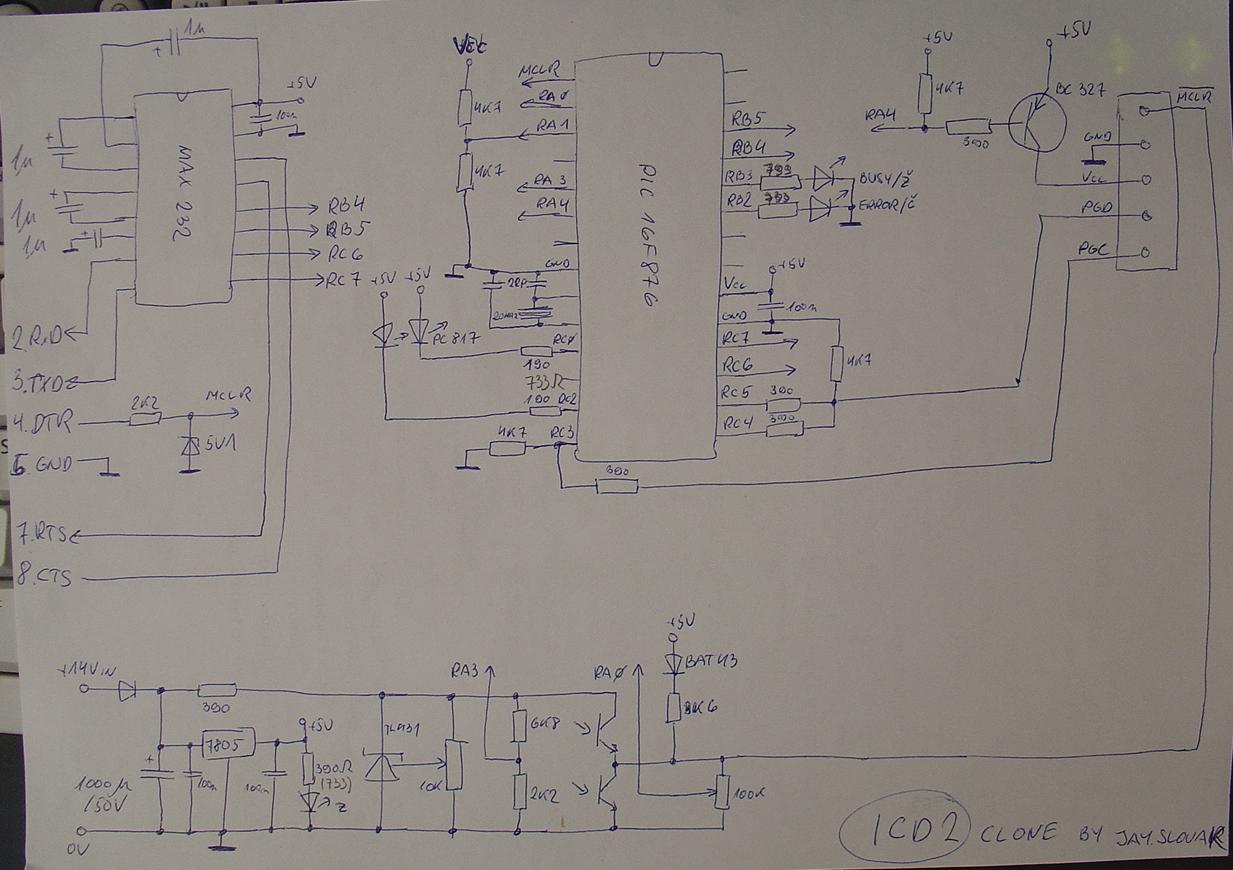 1µ
+
+5V
100n
+
1µ
+
1µ
+
1µ
MAX 232
RB4
RB5
RC6
RC7
2.RxD
3.TXD
4.DTR
2K2
MCLR
5V1
5.GND
7.RTS
8.CTS
Vcc
4K7
4K7
MCLR
RA0
RA1
RA3
RA4
GND
20P
20MHz
+5V
+5V
PC817
RC0
190
733Ω
190
RC2
4K7
RC3
390
PIC 16F876
RB5
RB4
RB3
RB2
BUSY/Ž
ERROR/Č
+5V
Vcc
100n
GND
RC7
RC6
RC5
390
RC4
390
4K7
+5V
4K7
RA4
390
+5V
BC 327
MCLR
GND
Vcc
PGD
PGC
+14V IN
390
1000µ
/50V
+
100n
7805
100n
+5V
390Ω
(733)
Z
0V
TL431
10K
RA3
6K8
2K2
RA0
+5V
BAT43
8K6
100K
ICD2 CLONE BY JAY.SLOVAK